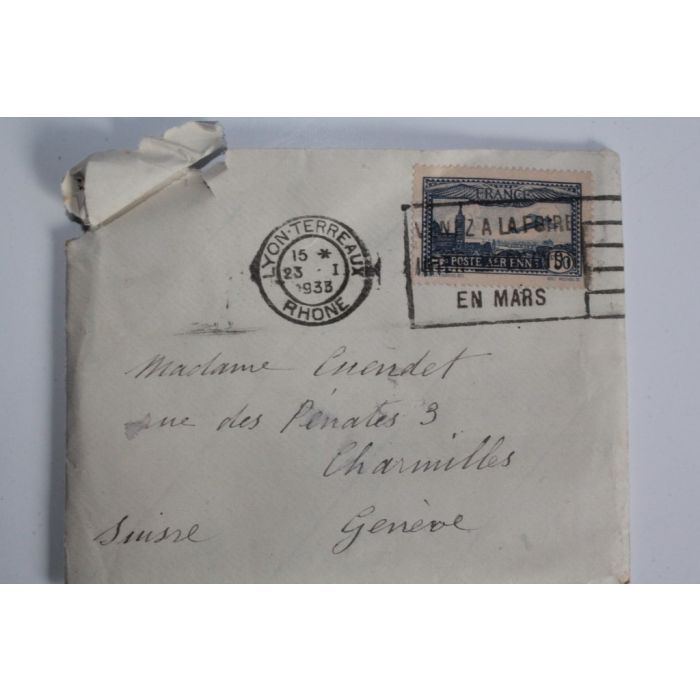 LYON-TERREAUX
15 *
23 - I
1933
RHONE
FRANCE
A LA FOIRE
POSTE AERIENNE
EN MARS
Madame Cuendet
rue des Pénates 3
Charmilles
Genève
Suisse